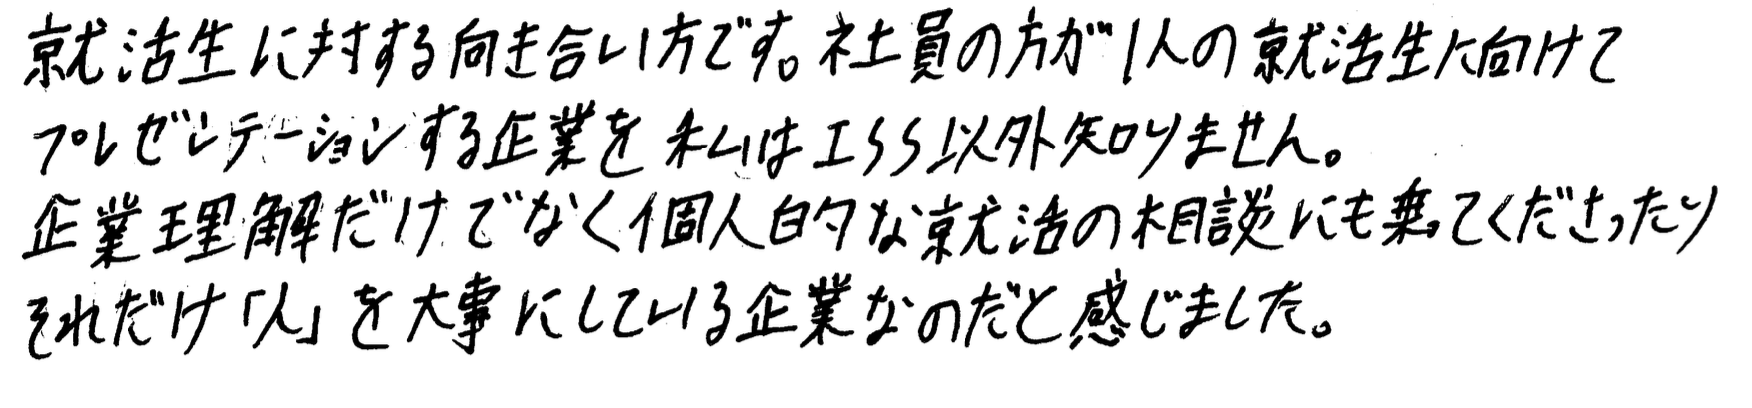 就活生に対する向き合い方です。社員の方が1人の就活生に向けて
プレゼンテーションする企業を私はISS以外知りません。
企業理解だけでなく個人的な就活の相談にも乗ってくださったり
それだけ「人」を大事にしている企業なのだと感じました。